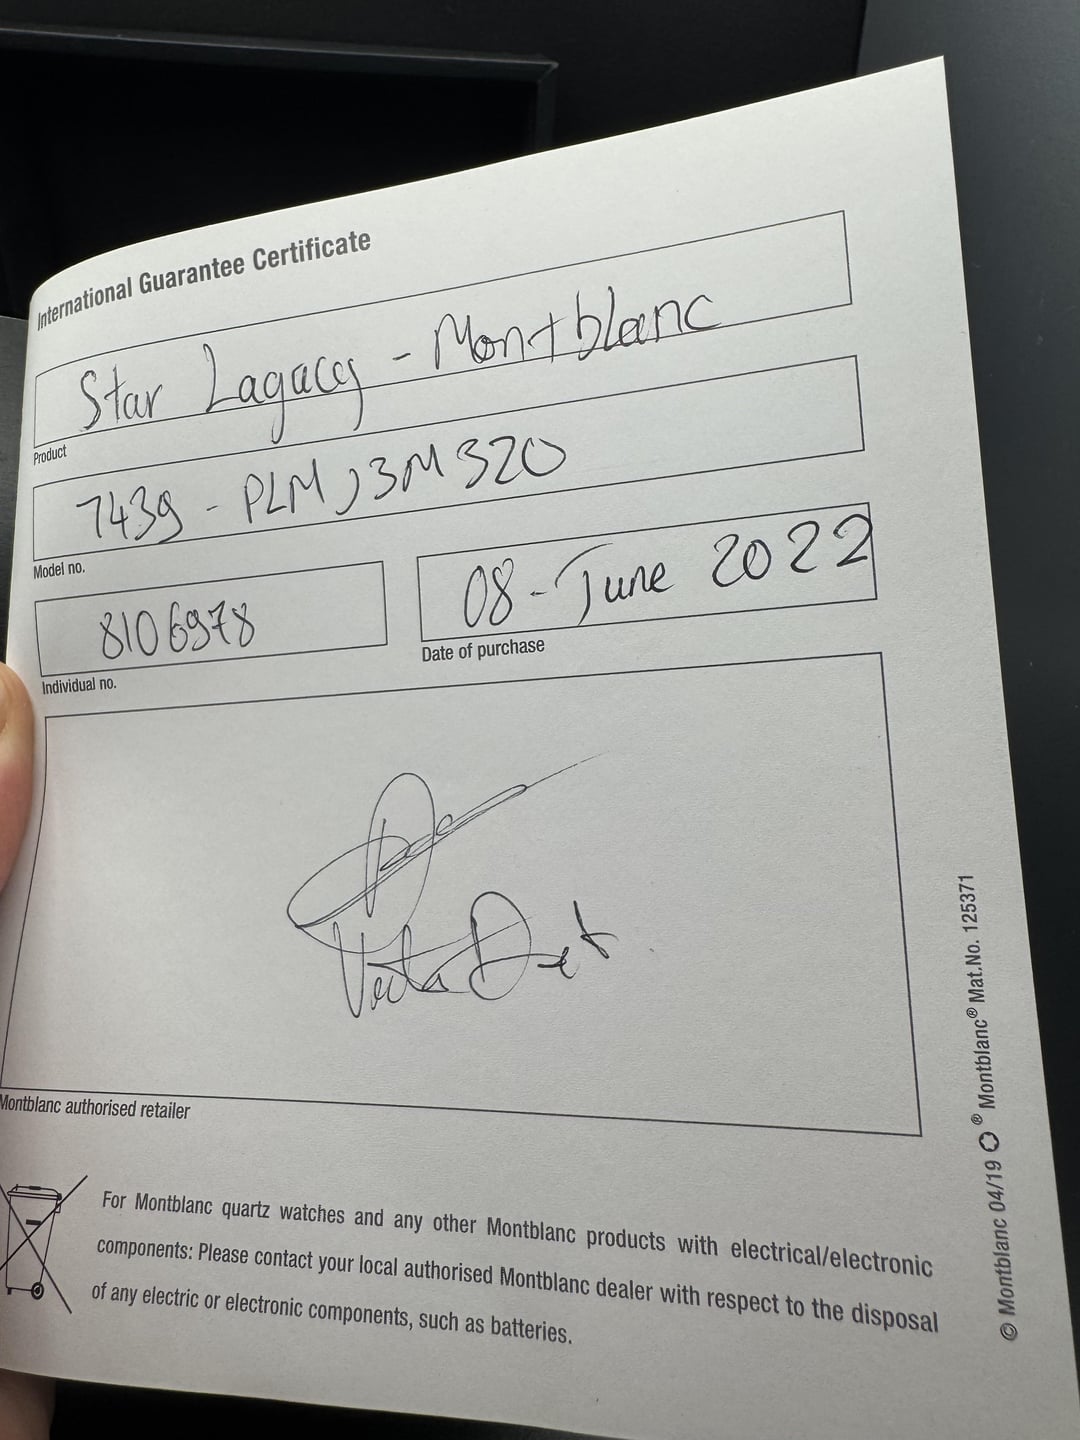 International Guarantee Certificate
Star Lagacy - Montblanc
Product
7439 - PLMJ3M320
Model no.
8106978
Individual no.
08 - June 2022
Date of purchase
Montblanc authorised retailer
For Montblanc quartz watches and any other Montblanc products with electrical/electronic
components: Please contact your local authorised Montblanc dealer with respect to the disposal
of any electric or electronic components, such as batteries.
© Montblanc 04/19 ® Montblanc® Mat.No. 125371